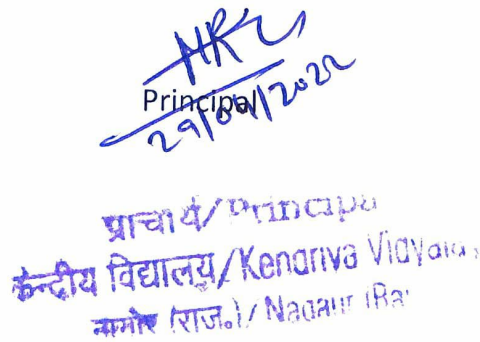 Principal
29/04/2022
प्राचार्य/Principa
केन्द्रीय विद्यालय/Kendriya Vidyala
नागौर (राज.)/Nagaur (Ra